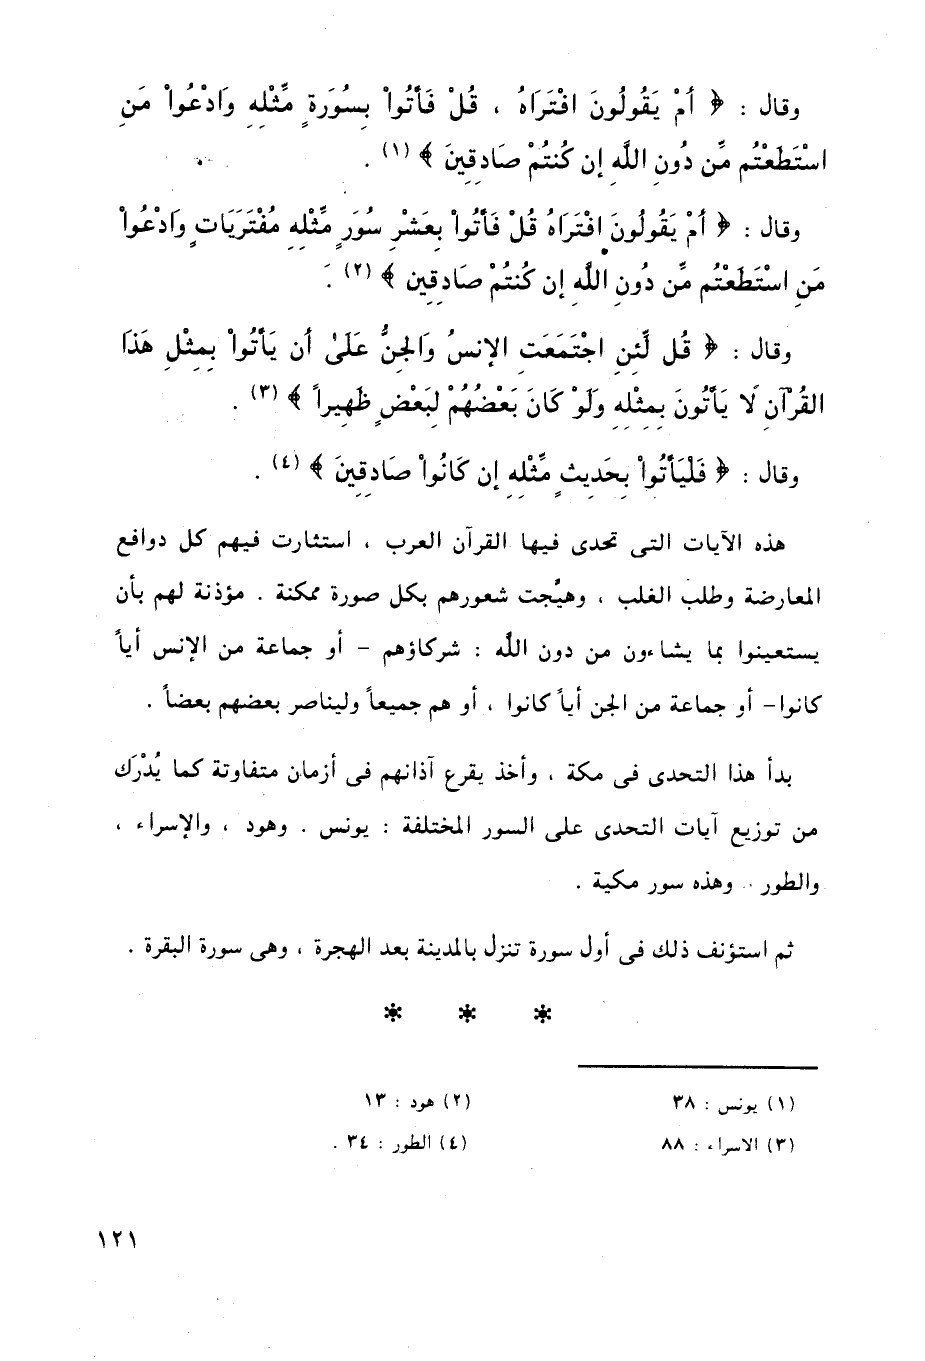 وقال : ﴿ أَمْ يَقُولُونَ افْتَرَاهُ ، قُلْ فَأْتُواْ بِسُورَةٍ مِّثْلِهِ وَادْعُواْ مَنِ
اسْتَطَعْتُم مِّن دُونِ اللَّهِ إِن كُنتُمْ صَادِقِينَ ﴾ (١) .
وقال : ﴿ أَمْ يَقُولُونَ افْتَرَاهُ قُلْ فَأْتُواْ بِعَشْرِ سُوَرٍ مِّثْلِهِ مُفْتَرَيَاتٍ وَادْعُواْ
مَنِ اسْتَطَعْتُم مِّن دُونِ اللَّهِ إِن كُنتُمْ صَادِقِين ﴾ (٢) .
وقال : ﴿ قُل لَّئِنِ اجْتَمَعَتِ الإِنسُ وَالْجِنُّ عَلَىٰ أَن يَأْتُواْ بِمِثْلِ هَذَا
القُرْآنِ لَا يَأْتُونَ بِمِثْلِهِ وَلَوْ كَانَ بَعْضُهُمْ لِبَعْضٍ ظَهِيراً ﴾ (٣) .
وقال : ﴿ فَلْيَأْتُواْ بِحَدِيثٍ مِّثْلِهِ إِن كَانُواْ صَادِقِينَ ﴾ (٤) .
هذه الآيات التى تحدى فيها القرآن العرب ، استثارت فيهم كل دوافع
المعارضة وطلب الغلب ، وهيَّجت شعورهم بكل صورة ممكنة . مؤذنة لهم بأن
يستعينوا بما يشاءون من دون الله : شركاؤهم – أو جماعة من الإنس أياً
كانوا– أو جماعة من الجن أياً كانوا ، أو هم جميعاً وليناصر بعضهم بعضاً .
بدأ هذا التحدى فى مكة ، وأخذ يقرع آذانهم فى أزمان متفاوتة كما يُدْرَك
من توزيع آيات التحدى على السور المختلفة : يونس . وهود ، والإسراء ،
والطور .. وهذه سور مكية .
ثم استؤنف ذلك فى أول سورة تنزل بالمدينة بعد الهجرة ، وهى سورة البقرة .
* * *
(١) يونس : ٣٨ (٢) هود : ١٣
(٣) الاسراء : ٨٨ (٤) الطور : ٣٤ .
١٢١